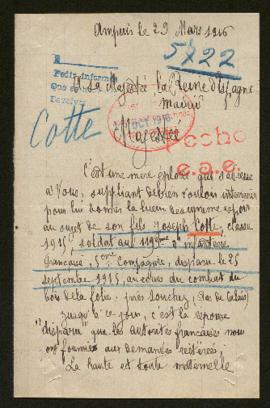 Ampuis le 29 Mars 1916
5822
A Sa Majesté la Reine d'Espagne
Madrid
Cotte
OCT 1916
Majesté
hecho
C'est une mère éplorée qui s'adresse
à Vous, suppliant de bien vouloir intervenir
pour lui donner la lueur
au sujet de son fils Joseph Cotte, classe
1915 soldat au
française, 5me Compagnie, disparu le 25
septembre 1915, au cours du combat du
bois de la Folie, près Souchez, (Pas de Calais)
Jusqu'à ce jour, c'est la réponse
"disparu" que les autorités françaises nous
ont
La haute et toute maternelle